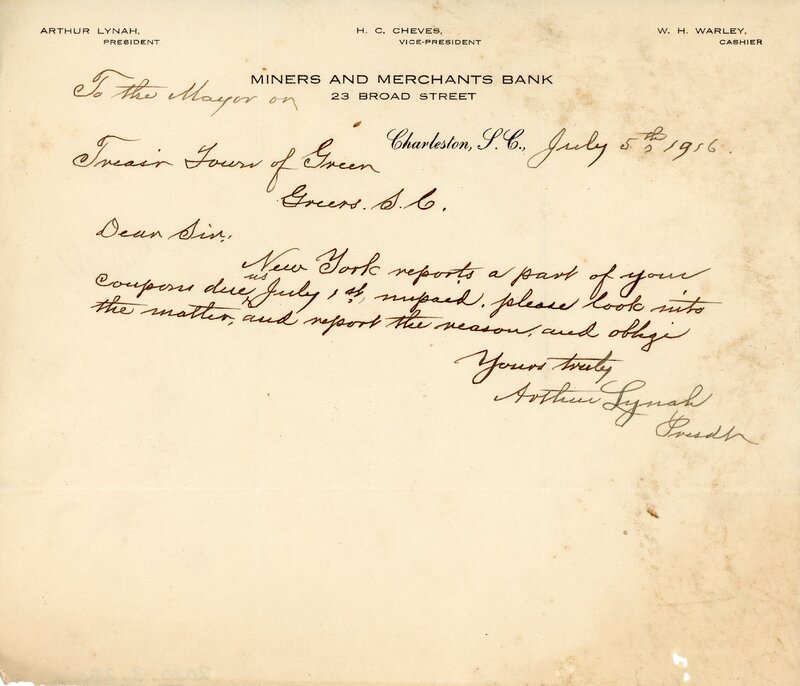 ARTHUR LYNAH, H. C. CHEVES, W. H. WARLEY,
PRESIDENT VICE-PRESIDENT CASHIER
MINERS AND MERCHANTS BANK
23 BROAD STREET
To the Mayor or
Charleston, S. C., July 5th 1916.
Treasr Town of Green
Greers. S.C.
Dear Sir,
New York reports a part of your
coupons due us July 1st, unpaid. please look into
the matter, and report the reason, and oblige
Yours truly
Arthur Lynah
Presdt